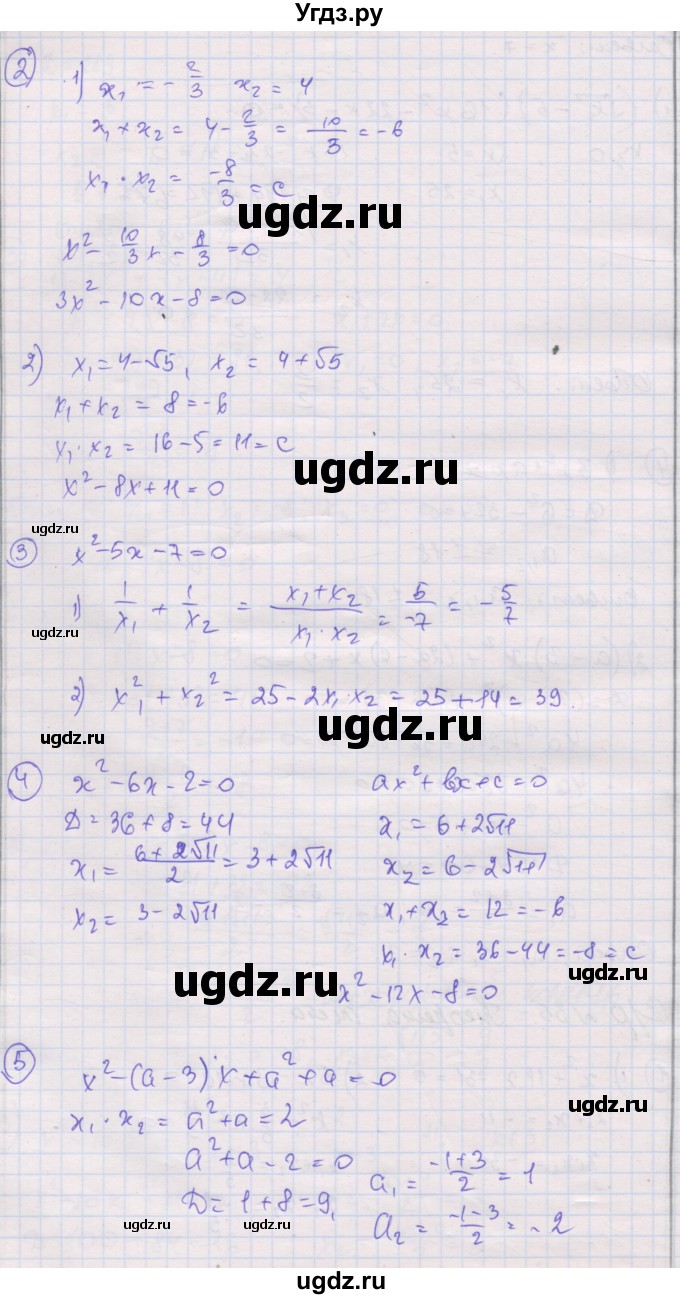 Угдз.ру
2) 1) x₁ = -2/3 x₂ = 4
x₁ + x₂ = 4 - 2/3 = 10/3 = -b
x₁ · x₂ = -8/3 = c
ugdz.ru
x² - 10/3 x - 8/3 = 0
3x² - 10x - 8 = 0
2) x₁ = 4-√5, x₂ = 4+√5
x₁ + x₂ = 8 = -b
x₁ · x₂ = 16 - 5 = 11 = c
ugdz.ru
x² - 8x + 11 = 0
ugdz.ru
3) x² - 5x - 7 = 0
1) 1/x₁ + 1/x₂ = (x₁+x₂)/(x₁·x₂) = 5/-7 = -5/7
ugdz.ru
2) x₁² + x₂² = 25 - 2x₁x₂ = 25 + 14 = 39.
ugdz.ru
ugdz.ru
4) x² - 6x - 2 = 0 ax² + bx + c = 0
D = 36 + 8 = 44 x₁ = 6 + 2√11
x₁ = (6 + 2√11)/2 = 3 + 2√11 x₂ = 6 - 2√11
x₂ = 3 - 2√11 x₁ + x₂ = 12 = -b
x₁ · x₂ = 36 - 44 = -8 = c
ugdz.ru
ugdz.ru
x² - 12x - 8 = 0
5) x² - (a - 3)x + a² + a = 0
x₁ · x₂ = a² + a = 2
a² + a - 2 = 0 a₁ = (-1+3)/2 = 1
D = 1 + 8 = 9, a₂ = (-1-3)/2 = -2
ugdz.ru
ugdz.ru
ugdz.ru